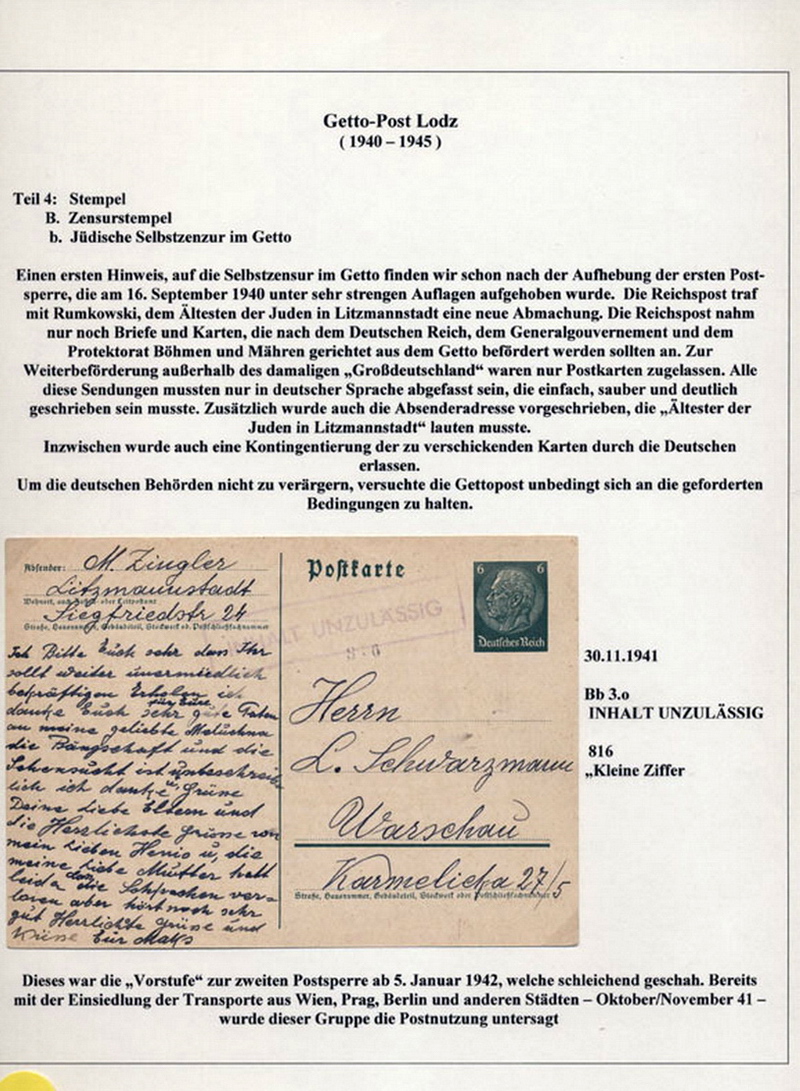 Getto-Post Lodz
( 1940 – 1945 )
Teil 4: Stempel
B. Zensurstempel
b. Jüdische Selbstzenzur im Getto
Einen ersten Hinweis, auf die Selbstzensur im Getto finden wir schon nach der Aufhebung der ersten Post-
sperre, die am 16. September 1940 unter sehr strengen Auflagen aufgehoben wurde. Die Reichspost traf
mit Rumkowski, dem Ältesten der Juden in Litzmannstadt eine neue Abmachung. Die Reichspost nahm
nur noch Briefe und Karten, die nach dem Deutschen Reich, dem Generalgouvernement und dem
Protektorat Böhmen und Mähren gerichtet aus dem Getto befördert werden sollten an. Zur
Weiterbeförderung außerhalb des damaligen „Großdeutschland“ waren nur Postkarten zugelassen. Alle
diese Sendungen mussten nur in deutscher Sprache abgefasst sein, die einfach, sauber und deutlich
geschrieben sein musste. Zusätzlich wurde auch die Absenderadresse vorgeschrieben, die „Ältester der
Juden in Litzmannstadt“ lauten musste.
Inzwischen wurde auch eine Kontingentierung der zu verschickenden Karten durch die Deutschen
erlassen.
Um die deutschen Behörden nicht zu verärgern, versuchte die Gettopost unbedingt sich an die geforderten
Bedingungen zu halten.
Absender: M. Zingler
Litzmannstadt
Siegfriedstr 24
Straße, Hausnummer, Gebäudeteil, Stockwerk od. Postschließfachnummer
Ich Bitte Euch sehr dass Ihr
sollt weiter unermüdlich
bekräftigen
danke Euch sehr für Eure gute Taten
an meine geliebte
die Bangschaft und die
Sehnsucht ist unbeschreib
lich ich danke, Grüsse
Deine Liebe Eltern und
die Herzlichste Grüsse von
mein Lieben Henio u, die
meine Liebe Mutter hatt
leider die Sprachen ver-
loren aber hört noch sehr
gut Herrlichte Grüsse und
Küsse Eur Maks
Postkarte
INHALT UNZULÄSSIG
6 6
Deutsches Reich
Herrn
L. Schwarzmann
Warschau
Karmelicka 27/5
Straße, Hausnummer, Gebäudeteil, Stockwerk oder Postschließfachnummer
30.11.1941
Bb 3.o
INHALT UNZULÄSSIG
816
„Kleine Ziffer
Dieses war die „Vorstufe“ zur zweiten Postsperre ab 5. Januar 1942, welche schleichend geschah. Bereits
mit der Einsiedlung der Transporte aus Wien, Prag, Berlin und anderen Städten – Oktober/November 41 –
wurde dieser Gruppe die Postnutzung untersagt